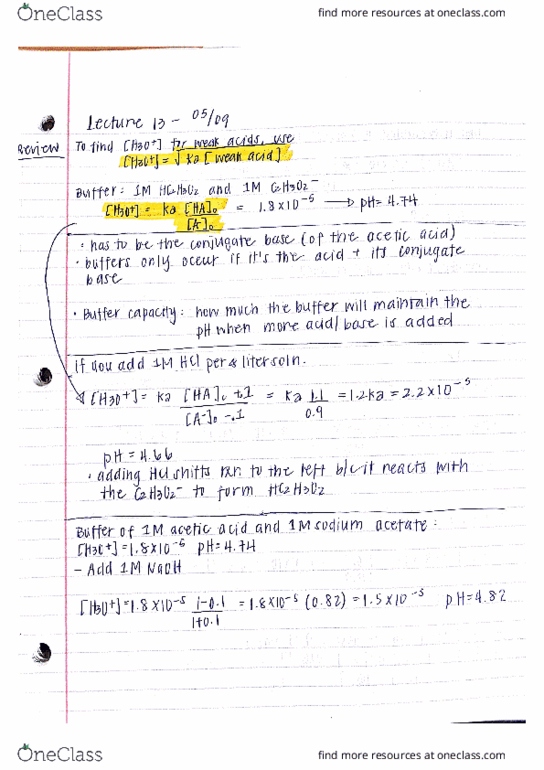 OneClass find more resources at oneclass.com
Lecture 13 - 05/09
Review To find [H3O+] for weak acids, use
[H3O+] = √ Ka [weak acid]
Buffer: 1M HC2H3O2 and 1M C2H3O2⁻
[H3O+] = Ka [HA]₀ = 1.8×10⁻⁵ → pH = 4.74
[A]₀
• has to be the conjugate base (of the acetic acid)
• buffers only occur if it's the acid + its conjugate
base
• Buffer capacity: how much the buffer will maintain the
pH when more acid/base is added
If you add 1M HCl per liter soln.
[H3O+] = Ka [HA]₀ +.1 = Ka 1.1 = 1.2Ka = 2.2×10⁻⁵
[A⁻]₀ -.1 0.9
pH = 4.66
• adding HCl shifts rxn to the left b/c it reacts with
the C2H3O2⁻ to form HC2H3O2
Buffer of 1M acetic acid and 1M sodium acetate:
[H3O+] = 1.8×10⁻⁵ pH = 4.74
- Add 1M NaOH
[H3O+] = 1.8×10⁻⁵ 1-0.1 = 1.8×10⁻⁵ (0.82) = 1.5×10⁻⁵ pH = 4.82
1+0.1
OneClass find more resources at oneclass.com